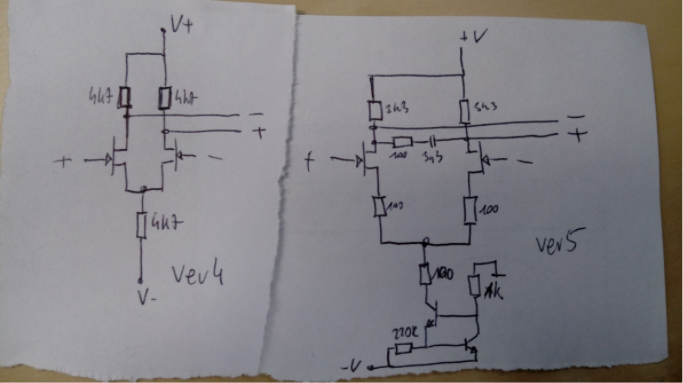 V+
4k7
4k7
−
+
+
−
4k7
V-
ver4
+V
3k3
−
+
100
3n3
+
−
100
100
ver5
100
1k
-V